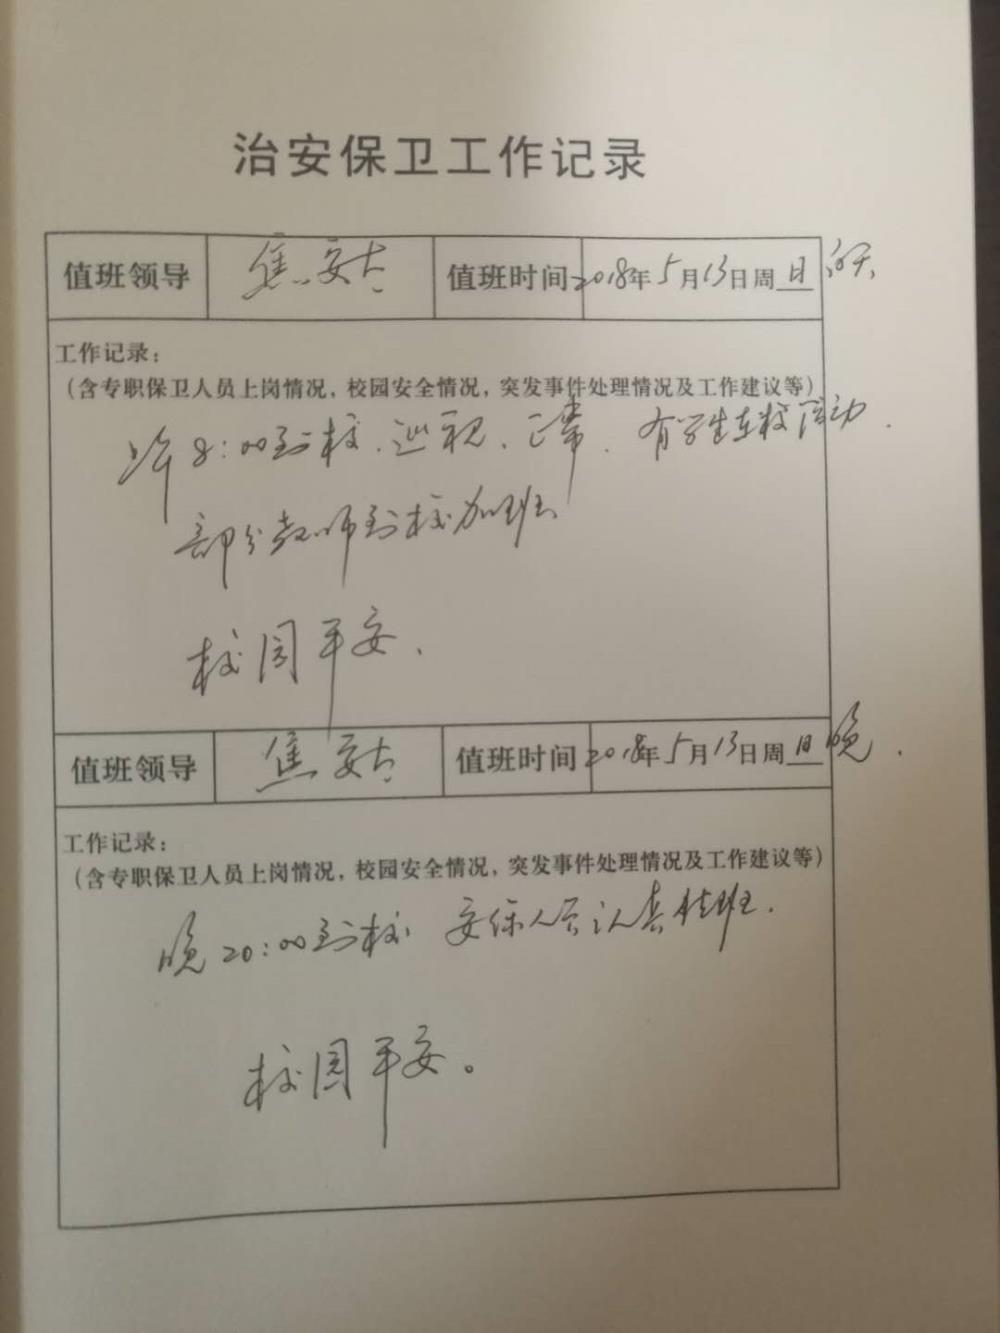 治安保卫工作记录
值班领导 焦安 值班时间 2018年5月13日周日 白天
工作记录：
（含专职保卫人员上岗情况，校园安全情况，突发事件处理情况及工作建议等）
上午8:00到校.巡视.正常.有学生在校活动.
部分教师到校加班
校园平安.
值班领导 焦安 值班时间 2018年5月13日周日 晚.
工作记录：
（含专职保卫人员上岗情况，校园安全情况，突发事件处理情况及工作建议等）
晚20:00到校 安保人员认真值班.
校园平安。